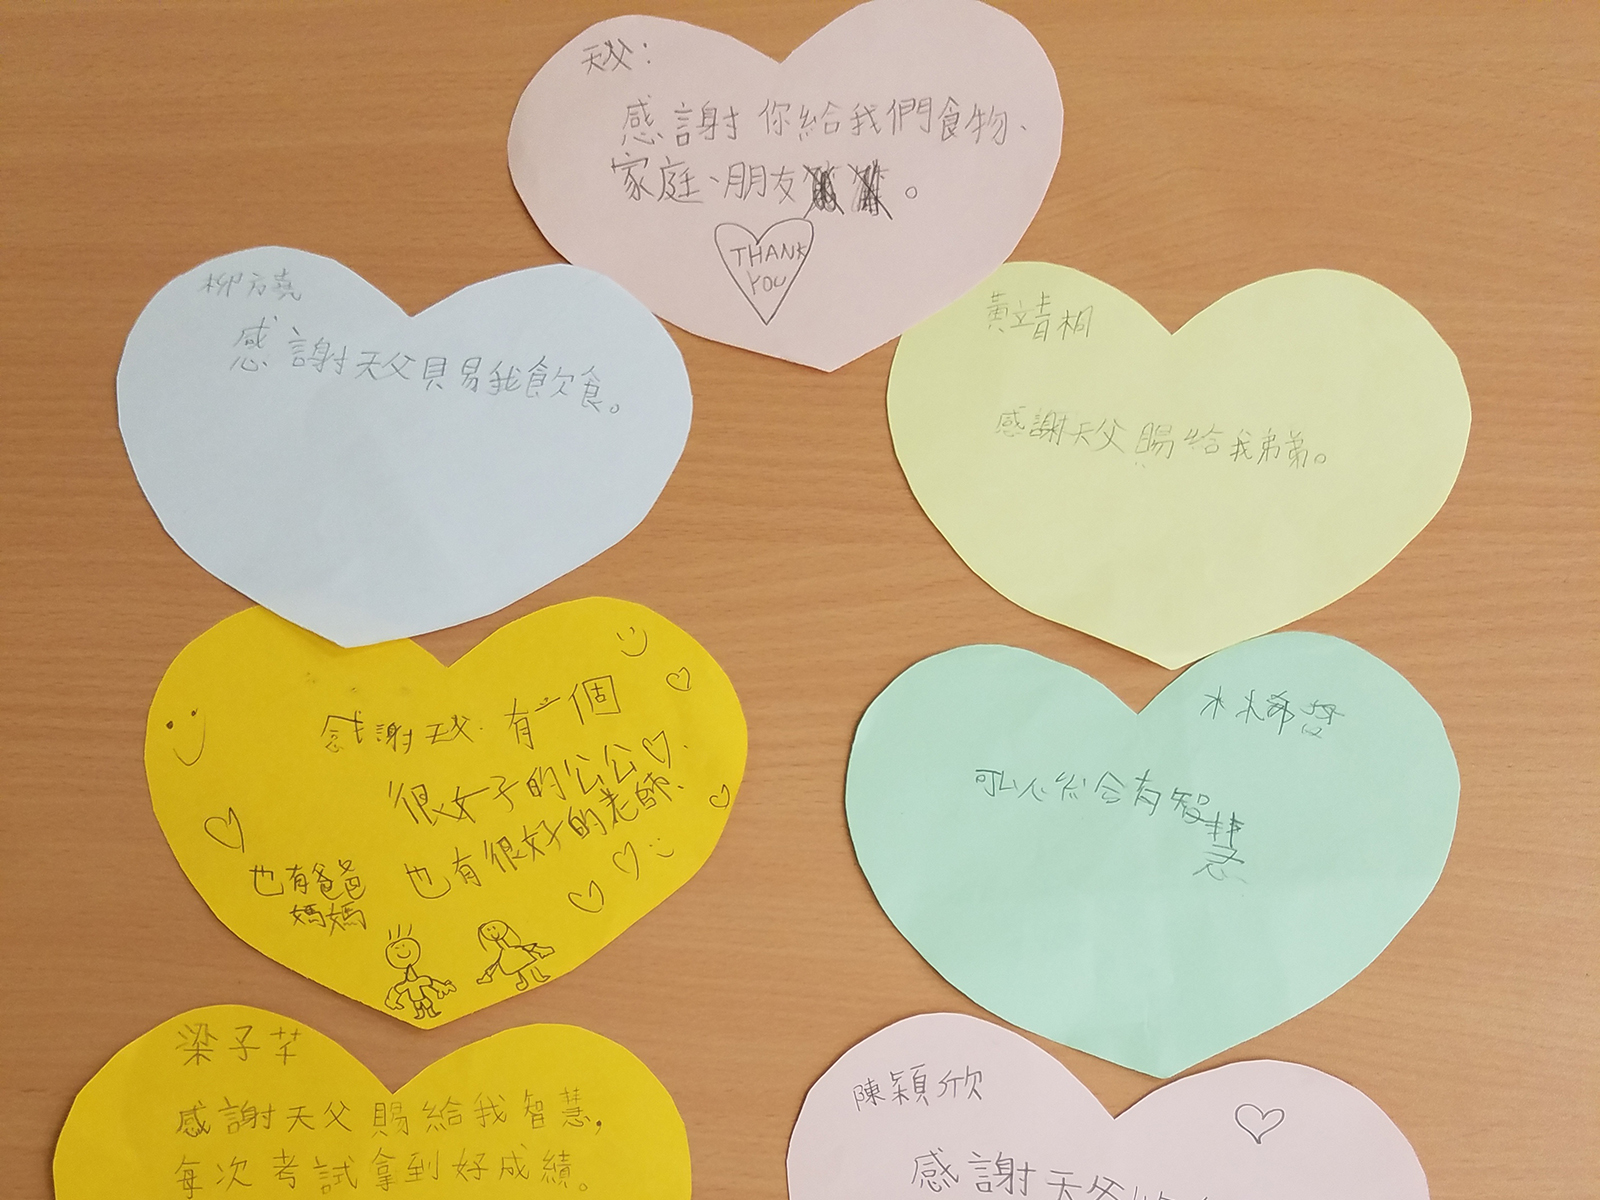 天父：
感謝你給我們食物、
家庭、朋友。
THANK
YOU
柳方堯
感謝天父賜我飲食。
黃靖桐
感謝天父賜給我弟弟。
感謝天父 有一個
很好的公公
也有很好的老師
也有爸爸
媽媽
林希
可以給合有智慧
梁子芊
感謝天父賜給我智慧,
每次考試拿到好成績。
陳穎欣
感謝天父